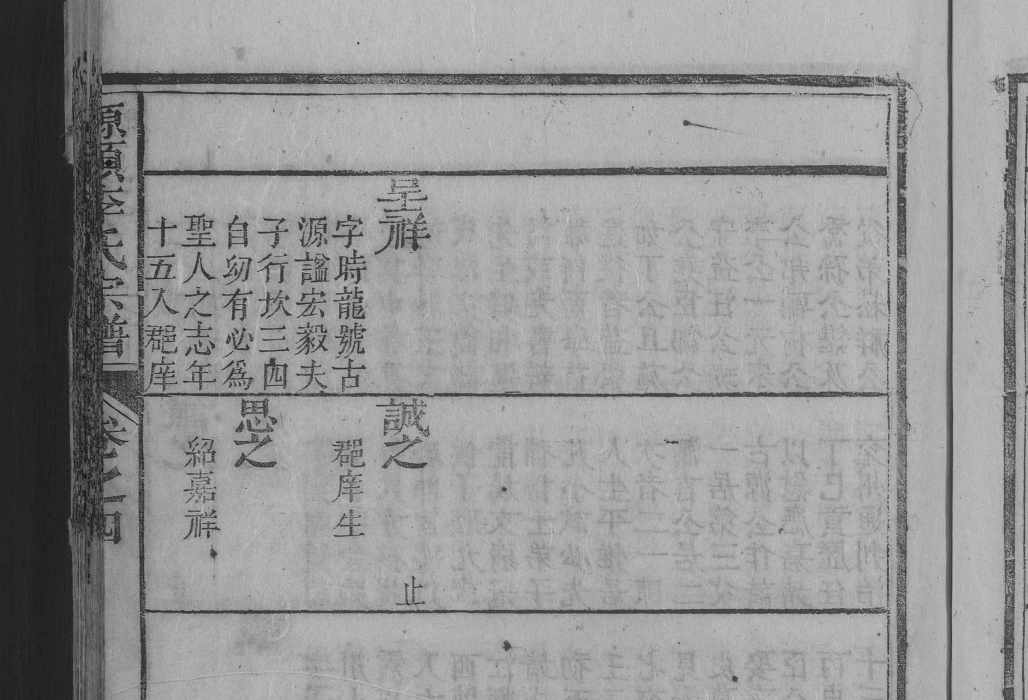 呈祥
字時龍號古
源謚宏毅夫
子行坎三四
自幼有必爲
聖人之志年
十五入郡庠
誠之
郡庠生
止
思之
紹嘉祥
源頭李氏宗譜
卷之四